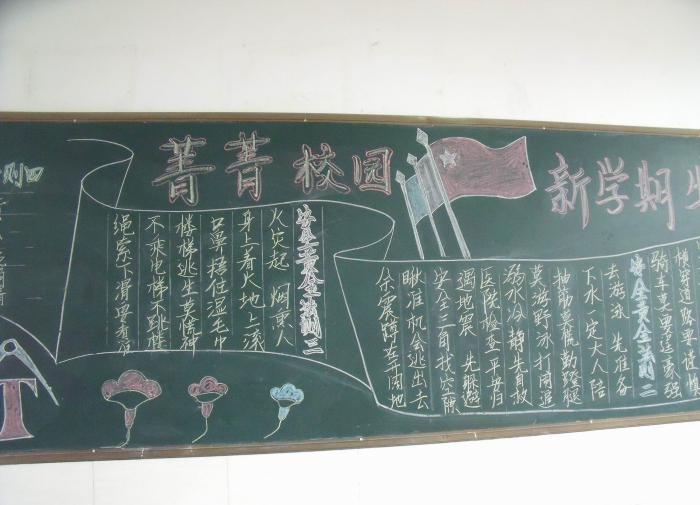 菁菁校园
新学期
则四
安全黄金法则三
火灾起 烟熏人
身上着火地上滚
口罩捂住湿毛巾
楼梯逃生莫慌神
不乘电梯不跳楼
绳索下滑要看管
骑车莫要逞豪强
安全黄金法则二
去游泳 先准备
下水一定大人陪
抽筋莫慌勤蹬腿
莫游野泳打闹追
溺水冷静先自救
医院检查平安归
遇地震 先躲避
安全三角找空隙
瞅准机会逃出去
余震防范开阔地
T